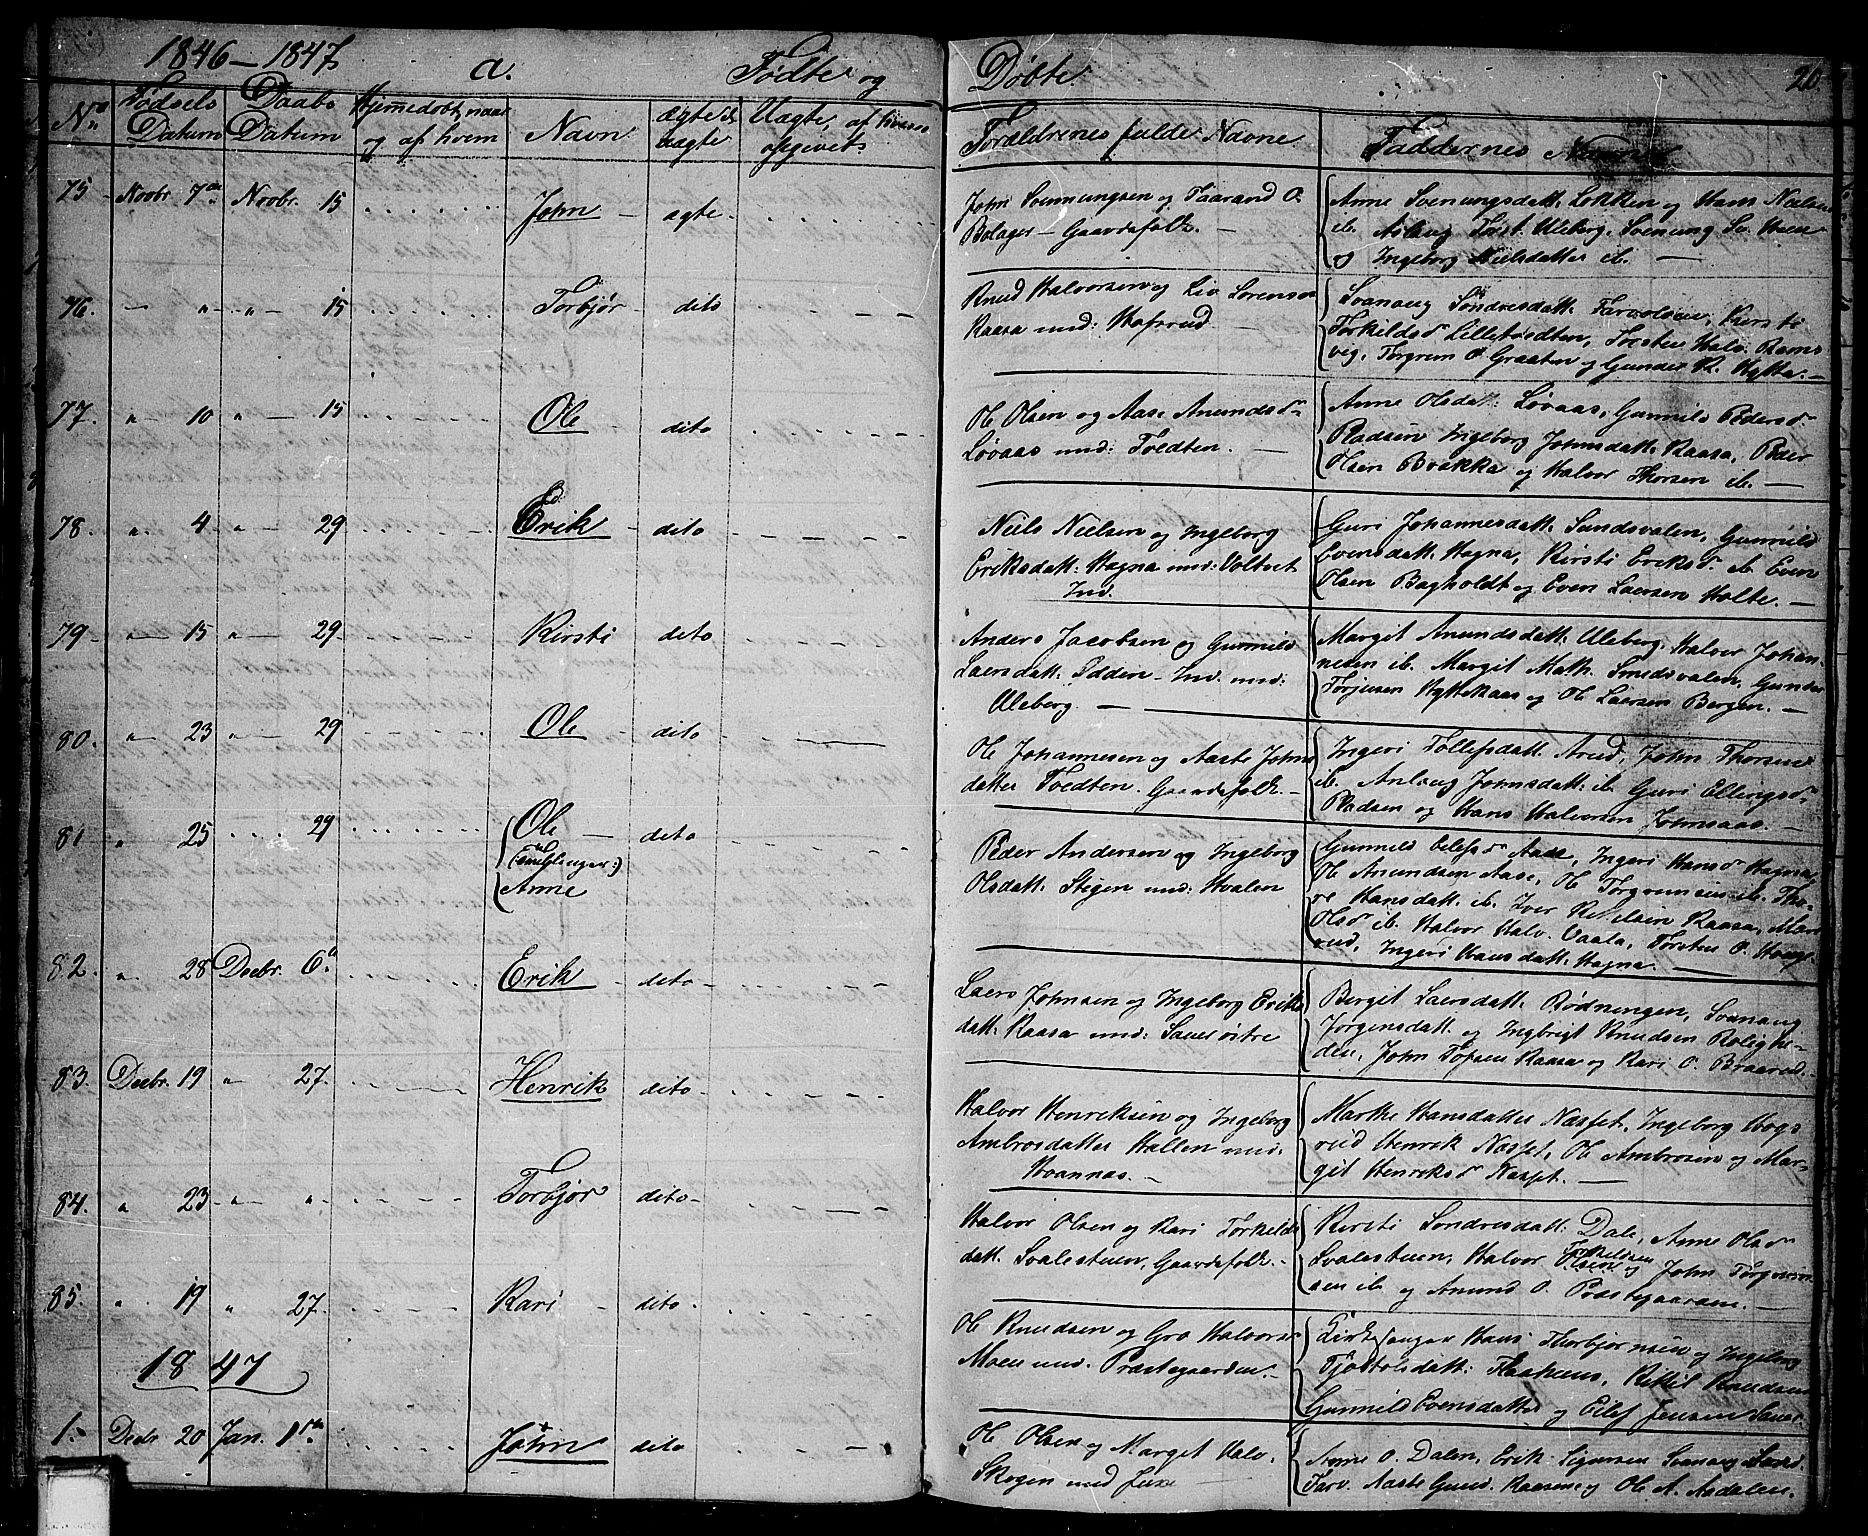 1846–1847 a. Fødte og Døbte. 20.
No Fødsels Datum Daabs Datum Hjemmedøbt, naar og af hvem Navn ægte el. uægte Uægte, af hvem opgivet Forældrenes fulde Navne Faddernes Navne
75 Novbr. 7de Novbr. 15 John ægte
John Svennungsen og Taarand O.
Bolager – Gaardsfolk.
Anne Svenungsdatt. Løkken og Hans Nielsen
ib. Aslaug Torst. Uleberg, Svenung Sv.
og Ingeborg Nielsdatter ib.
76. 15 Torbjør dito
Knud Halvorsen og Liv Sorens
Raasa und: Hafsrud
Svanaug Sondresdatt. Farvolden, Kirsti
Torkildsd Lilletvedten, Torsten Halv. Rams
vig, Torgrim O. Graaten og Gunder K. Hytta.
77. 10 15 Ole dito
Ole Olsen og Aase Anundsd
Løvaas und: Tvedten.
Anne Olsdat: Løvaas, Gunnild Pedersd
Pladsen Ingeborg Johnsdatt. Raasa, Peder
Olsen Brakka og Halvor Thorsen ib.
78. 4 29 Erik dito
Niels Nielsen og Ingeborg
Eriksdatt: Hagna und: Voltvet
Ind.
Guri Johannesdatt. Sundsvalen, Gunnild
Evensdatt. Hagna, Kirsti Eriksd ib. Even
Olsen Bagholdt og Even Laersen Holte.
79 15 29 Kirsti dito
Anders Jacobsen og Gunnild
Laersdatt. Odden – Ind. und:
Uleberg.
Margit Anundsdatt. Uleberg, Halvor Johan
nesen ib. Margit Math. Smedsvalen, Gunder
Torjusen Hyttekaas og Ole Laersen Bergen.
80. 23 29 Ole dito
Ole Johannesen og Aaste Johns
datter Tvedten. Gaardsfolk.
Ingeri Tollefsdatt. Arud, John Thorsen
ib. Anlaug Johnsdatt. ib. Guri Ellingsd
Pladsen og Hans Halvorsen Johnsaas.
81 25 29 Ole
(Tvillinger:)
Anne dito
Peder Andersen og Ingeborg
Olsdatt. Stigen und: Hvalen
Gunnild Eilefsd Aase, Ingeri Hansd Hagna,
Ole Anundsen Aase, Ole Torgrimsen ib. Tho-
re Hansdatt. ib. Iver Kittilsen Raasa,
Olsd ib. Halvor Halv. Vaala, Torsten O. Hauge
rud, Ingeri Hansdatt. Hagna.
82. 28 Decbr. 6te Erik dito
Laers Johnsen og Ingeborg Eriks
datt. Raasa und: Saue østre
Bergit Laersdatt. Rødningen, Svanaug
Jørgensdatt. og Ingbrigt Knudsen Rolighe-
den, John Tofsen Raasa og Kari O. Braarud.
83. Decbr. 19 27. Henrik dito
Halvor Henriksen og Ingeborg
Ambrosdatter Hallen und:
Hvannas.
Marthe Hansdatter Næsset, Ingeborg Hogs
rud Henrik Næsset, Ole Ambrosen og Mar-
git Henriksd Næsset.
84. 23 Torbjør dito
Halvor Olsen og Kari Torkilds
datt. Svalestuen, Gaardsfolk.
Kirsti Sondresdatt: Dale, Anne Olsd
Svalestuen, Halvor Torkildsen Olsen og John Torgrim
sen ib. og Anund O. Præstegaarden.
85. 19 27. Kari dito
Ole Knudsen og Gro Halvors
Moen und. Præstegaarden.
Kirkesanger Hans Thorbjørnsen og Ingeborg
Tjostolsdatt: Haakæns, Kittil Knudsen
Gunnild Evensdatter og Eilef Jensen Saue.
1847
1. Decbr 20 Jan. 1ste John dito
Ole Olsen og Marget Halv.
Skogen und Juve
Anne O. Dalen, Erik Sigursen Svanaug
Tarv. Aaste Gund. Raasen, og Ole A. Aadalen.